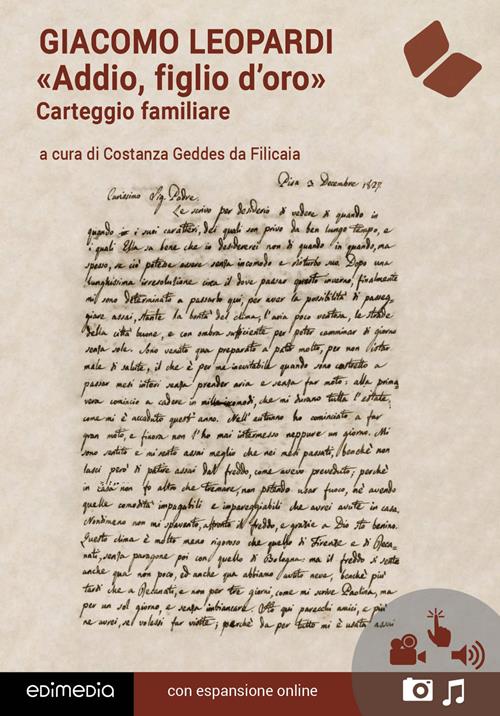 GIACOMO LEOPARDI
«Addio, figlio d’oro»
Carteggio familiare
a cura di Costanza Geddes da Filicaia
Pisa 3 Decembre 1827.
Carissimo Sig. Padre.
Le scrivo per desiderio di vedere di quando in
quando i suoi caratteri, dei quali son privo da ben lungo tempo, e
i quali Ella sa bene che io desidererei non di quando in quando, ma
spesso, se ciò potesse essere senza incomodo e disturbo suo. Dopo una
lunghissima irresoluzione circa il dove passar questo inverno, finalmente
mi sono determinato a passarlo qui, per aver la possibilità di passeg-
giare assai, stante la bontà del clima, l'aria poco ventosa, le strade
della città buone, e con ombra sufficiente per poter camminar di giorno
senza sole. Sono venuto qua preparato a patir molto, per non istar
male di salute, il che è per me inevitabile quando sono costretto a
passar mesi interi senza prender aria e senza far moto: alla prima-
vera comincio a cadere in mille incomodi, che mi durano tutta l'estate,
come mi è accaduto quest'anno. Nell'autunno ho cominciato a far
gran moto, e finora non l'ho mai intermesso neppure un giorno. Mi
sono sentito e mi sento assai meglio che nei mesi passati, benchè non
lasci però di patire assai dal freddo, come avevo preveduto; perchè
in casa non fo altro che tremare, non potendo usar fuoco, nè avendo
quelle comodità impagabili e impareggiabili che avrei avute in casa.
Nondimeno non mi spavento, affronto il freddo, e grazie a Dio sto benino.
Questo clima è molto meno rigoroso che quello di Firenze e di Reca-
nati, senza paragone poi con quello di Bologna: ma il freddo si sente
anche qua non poco, ed anche qua abbiamo avuto neve, benchè più
tardi che a Recanati, e non per tre giorni, come mi scrive Paolina, ma
per un sol giorno, e senza imbiancare. Ho qui parecchi amici, e più
ne avrei, se volessi far visite; perchè da per tutto mi è usata assai
edimedia
con espansione online